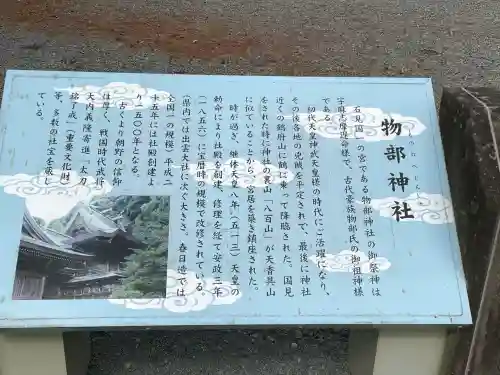 物部神社
もののべじんじゃ
石見国一の宮である物部神社の御祭神は
宇摩志麻遅命様で、古代豪族物部氏の御祖神様
である。
初代天皇神武天皇様の時代にご活躍になり、
その後各地の兇賊を平定されて、最後に神社
近くの鶴府山に鶴に乗って降臨された。国見
をされた時に神社の裏山「八百山」が天香具山
に似ていることから、宮居を築き鎮座された。
時が過ぎ、継体天皇八年（五一三）天皇の
勅命により社殿を創建、修理を経て安政三年
（一八五六）に宝暦時の規模で改修されている。
（県内では出雲大社に次ぐ大きさ、春日造では
全国一の規模）平成二
十五年には社殿創建よ
り一五〇〇年となる。
古くより朝野の信仰
は厚く、戦国時代武将
大内義隆寄進「太刀
銘了戒」（重要文化財）
等、多数の社宝を蔵し
ている。